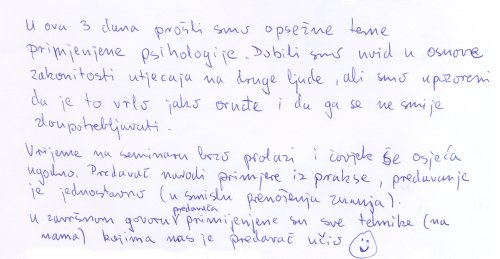 U ova 3 dana prošli smo opsežne teme
primjenjene psihologije. Dobili smo uvid u osnove
zakonitosti utjecaja na druge ljude, ali smo upozoreni
da je to vrlo jako oruđe i da ga se ne smije
zloupotrebljavati.
Vrijeme na seminaru brzo prolazi i čovjek se osjeća
ugodno. Predavač navodi primjere iz prakse, predavanje
je jednostavno (u smislu prenošenja znanja).
U završnom govoru predavača primijenjene su sve tehnike (na
nama) kojima nas je predavač učio ☺